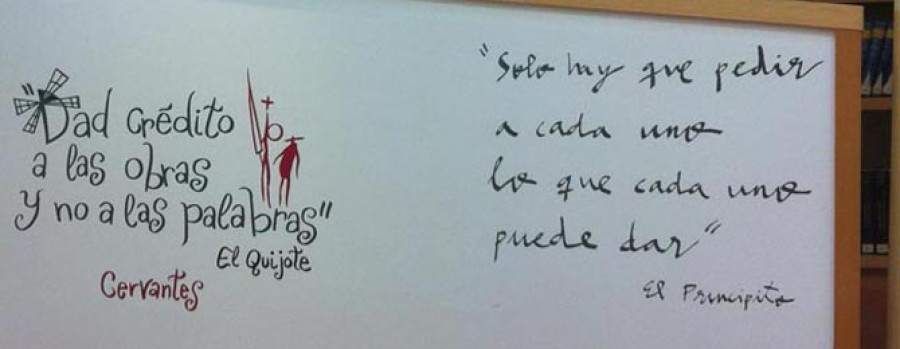 "Dad crédito
a las obras
y no a las palabras"
El Quijote
Cervantes
"Solo hay que pedir
a cada uno
lo que cada uno
puede dar"
El Principito